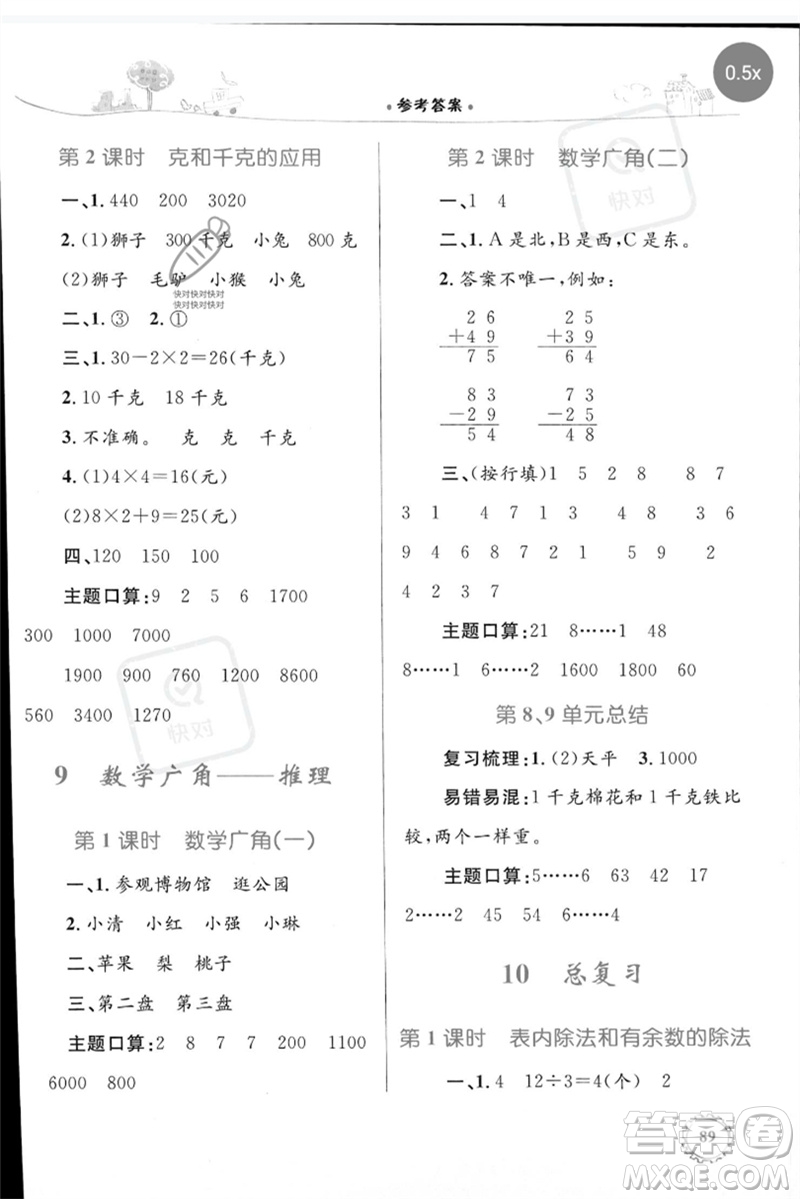 0.5x
·参考答案·
第 2 课时 克和千克的应用
一、1. 440 200 3020
2. (1)狮子 300 千克 小兔 800 克
(2)狮子 毛驴 小猴 小兔
快对快对快对
快对快对快对
二、1. ③ 2. ①
三、1. 30-2×2=26(千克)
2. 10 千克 18 千克
3. 不准确。 克 克 千克
4. (1)4×4=16(元)
(2)8×2+9=25(元)
四、120 150 100
主题口算:9 2 5 6 1700
300 1000 7000
1900 900 760 1200 8600
560 3400 1270
快对
9 数学广角——推理
第 1 课时 数学广角(一)
一、1. 参观博物馆 逛公园
2. 小清 小红 小强 小琳
二、苹果 梨 桃子
三、第二盘 第三盘
主题口算:2 8 7 7 200 1100
6000 800
第 2 课时 数学广角(二)
快对
一、1 4
二、1. A 是北,B 是西,C 是东。
2. 答案不唯一,例如:
2 6 2 5
+4 9 +3 9
7 5 6 4
8 3 7 3
-2 9 -2 5
5 4 4 8
三、(按行填)1 5 2 8 8 7
3 1 4 7 1 3 4 8 3 6
9 4 6 8 7 2 1 5 9 2
4 2 3 7
主题口算:21 8……1 48
8……1 6……2 1600 1800 60
快对
第 8、9 单元总结
复习梳理:1. (2)天平 3. 1000
易错易混:1 千克棉花和 1 千克铁比
较,两个一样重。
主题口算:5……6 63 42
2……2 45 54 6……4
10 总复习
第 1 课时 表内除法和有余数的除法
一、1. 4 12÷3=4(个) 2
89
答案卷
MXQE.COM